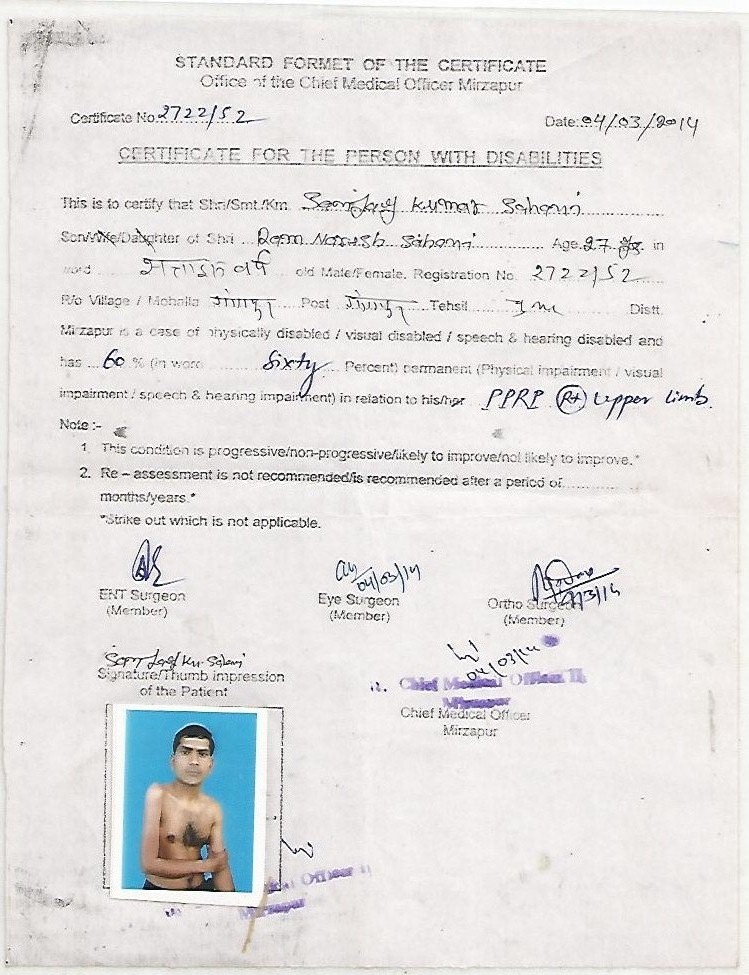 STANDARD FORMET OF THE CERTIFICATE
Office of the Chief Medical Officer Mirzapur
Certificate No.2722/52 Date:04/03/2014
CERTIFICATE FOR THE PERSON WITH DISABILITIES
This is to certify that Shri/Smt./Km. Sanjay Kumar Sahani
Son/Wife/Daughter of Shri Ram Naresh Sahani Age 27 in
word सत्ताइस वर्ष old Male/Female. Registration No. 2722/52
R/o Village / Mohalla Post Tehsil Distt.
Mirzapur is a case of physically disabled / visual disabled / speech & hearing disabled and
has 60 % (in word Sixty Percent) permanent (Physical impairment / visual
impairment / speech & hearing impairment) in relation to his/her PPRP Rt Upper limb.
Note :-
1. This condition is progressive/non-progressive/likely to improve/not likely to improve.*
2. Re – assessment is not recommended/is recommended after a period of..............
months/years.*
*Strike out which is not applicable.
04/03/14
ENT Surgeon Eye Surgeon Ortho Surgeon
(Member) (Member) (Member)
04/03/14
Signature/Thumb impression
of the Patient
Chief Medical Officer
Mirzapur
Chief Medical Officer
Mirzapur
Officer
Mirzapur